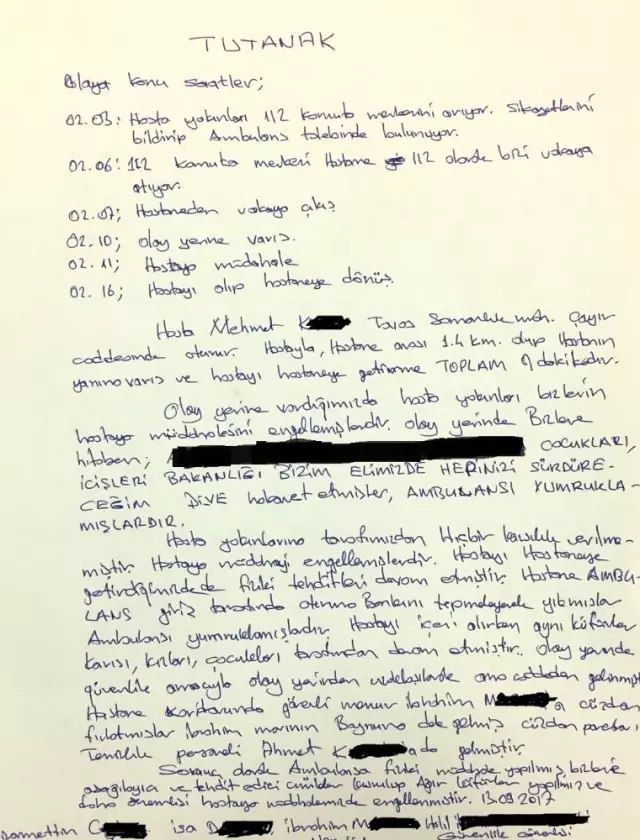 TUTANAK
Olaya konu saatler;
02.03: Hasta yakınları 112 komuta merkezini arıyor. Şikayetlerini
bildirip Ambulans talebinde bulunuyor.
02.06: 112 komuta merkezi Hastane 112 olarak bizi vakaya
atıyor.
02.07; Hastaneden vakaya çıkış
02.10; olay yerine varış.
02.11; Hastaya müdahale
02.16; Hastayı alıp hastaneye dönüş.
Hasta Mehmet K Toros Samanlık mah. Çayır
caddesinde oturur. Hastayla, Hastane arası 1.4 km. olup Hastanın
yanına varış ve hastayı hastaneye getirme TOPLAM 9 dakikadır.
Olay yerine vardığımızda hasta yakınları bizlerin
hastaya müdahalesini engellemişlerdir. olay yerinde Bizlere
hitaben; ÇOCUKLARI,
İÇİŞLERİ BAKANLIĞI BİZİM ELİMİZDE HEPİNİZİ SÜRDÜRE-
CEĞİM DİYE hakaret etmişler, AMBULANSI YUMRUKLA-
MIŞLARDIR.
Hasta yakınlarına tarafımızdan Hiçbir karşılık verilme-
miştir. Hastaya müdahaleyi engellemişlerdir. Hastayı Hastaneye
getirdiğimizde de fiziki tehditleri devam etmiştir. Hastane AMBU-
LANS giriş tarafında oturma Bankını tepmeleyerek yıkmışlar
Ambulansı yumruklamışlardır. Hastayı içeri alırken aynı küfürler
karısı, kızları, çocukları tarafından devam etmiştir. Olay yerinde
güvenlik amacıyla olay yerinden uzaklaşılarak ana caddeden gelinmiş
Hastane koridorunda görevli memur ibrahim M a cüzdan
fırlatmışlar ibrahim M Boynuna dek gelmiş cüzdan parçası,
Temizlik personeli Ahmet K a da gelmiştir.
Sonuç olarak Ambulansa fiziki müdahale yapılmış, bizlere
aşağılayıcı ve tehdit edici cümleler kurulup Ağır küfürler yapılmış ve
daha önemlisi hastaya müdahalemizde engellenmiştir. 13.09.2017
C isa D ibrahim M Halil
Güvenlik görevlisi